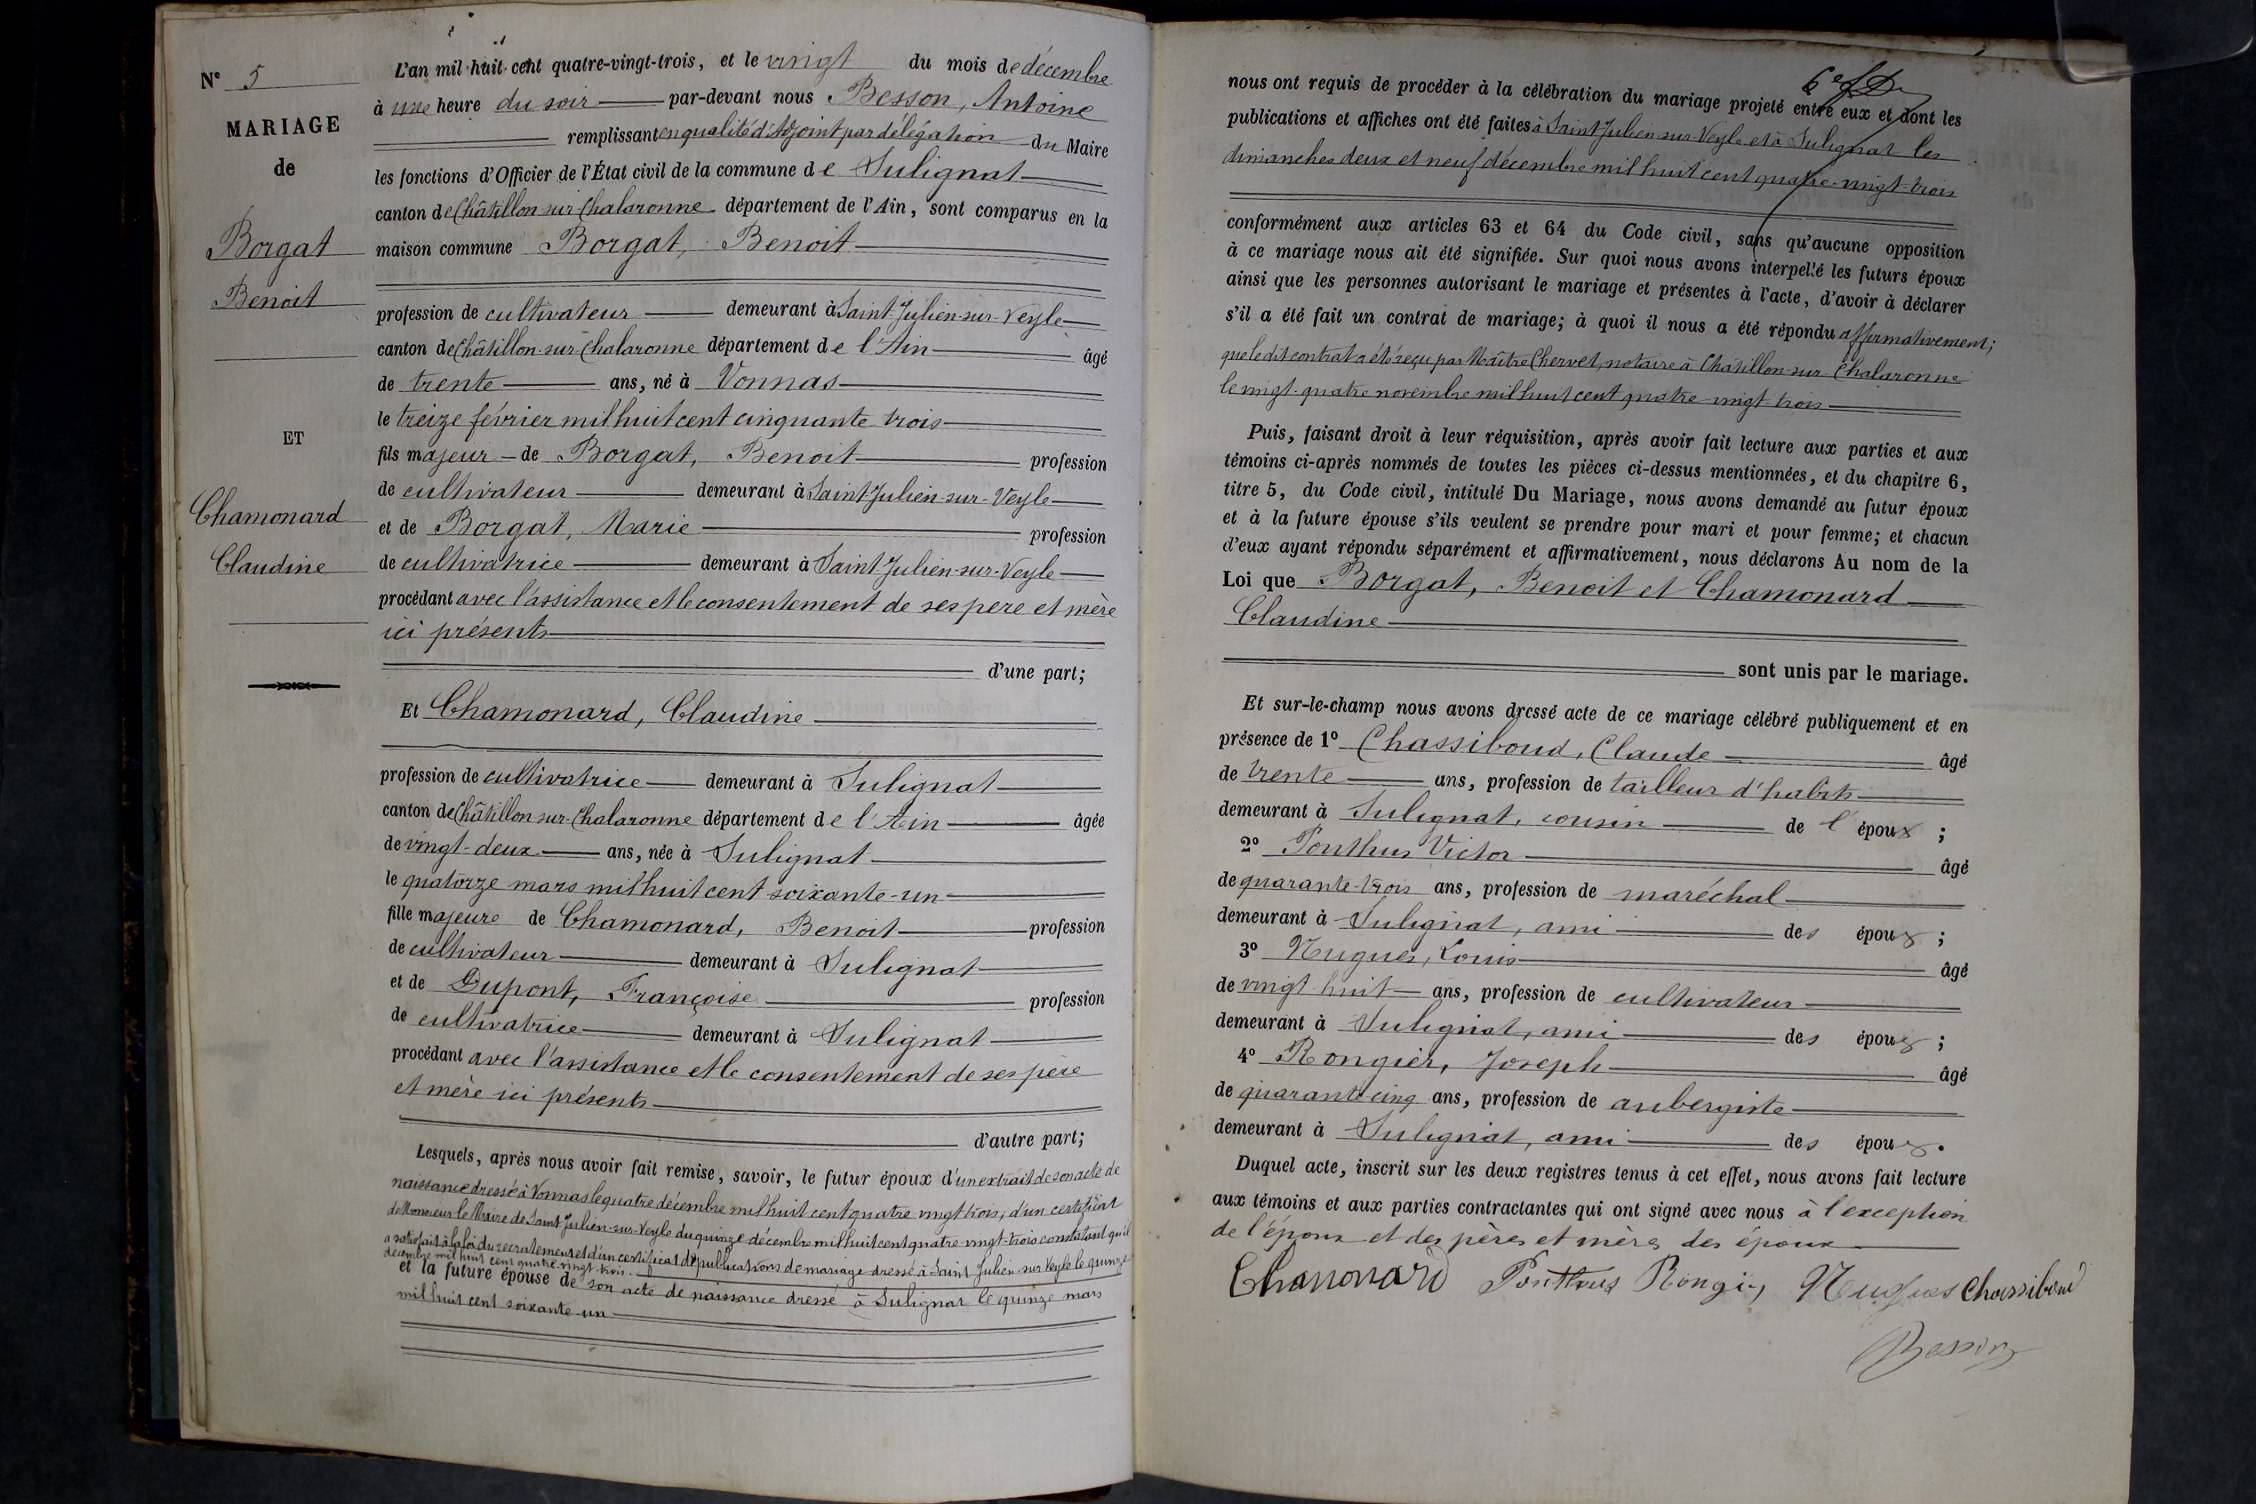 N° 5
MARIAGE
de
Borgat
Benoit
ET
Chamonard
Claudine
L'an mil huit cent quatre-vingt-trois, et le vingt du mois de décembre
à une heure du soir par-devant nous Besson, Antoine
remplissant en qualité d'Adjoint par délégation du Maire
les fonctions d'Officier de l'État civil de la commune de Sulignat
canton de Châtillon-sur-Chalaronne département de l'Ain, sont comparus en la
maison commune Borgat, Benoit
profession de cultivateur demeurant à Saint-Julien-sur-Veyle
canton de Châtillon-sur-Chalaronne département de l'Ain âgé
de trente ans, né à Vonnas
le treize février mil huit cent cinquante trois
fils majeur de Borgat, Benoit profession
de cultivateur demeurant à Saint-Julien-sur-Veyle
et de Borgat, Marie profession
de cultivatrice demeurant à Saint-Julien-sur-Veyle
procédant avec l'assistance et le consentement de ses pere et mère
ici présents
d'une part;
Et Chamonard, Claudine
profession de cultivatrice demeurant à Sulignat
canton de Châtillon-sur-Chalaronne département de l'Ain âgée
de vingt-deux ans, née à Sulignat
le quatorze mars mil huit cent soixante-un
fille majeure de Chamonard, Benoit profession
de cultivateur demeurant à Sulignat
et de Dupont, Françoise profession
de cultivatrice demeurant à Sulignat
procédant avec l'assistance et le consentement de ses père
et mère ici présents
d'autre part;
Lesquels, après nous avoir fait remise, savoir, le futur époux d'un extrait de son acte de
naissance dressé à Vonnas le quatre décembre mil huit cent quatre vingt trois; d'un certificat
de Monsieur le Maire de Saint Julien-sur-Veyle du quinze décembre mil huit cent quatre-vingt-trois constatant qu'il
a satisfait à la loi du recrutement et d'un certificat de publications de mariage dressé à Saint Julien-sur-Veyle le quinze
décembre mil huit cent quatre-vingt-trois.
et la future épouse de son acte de naissance dressé à Sulignat le quinze mars
mil huit cent soixante-un
nous ont requis de procéder à la célébration du mariage projeté entre eux et dont les
publications et affiches ont été faites à Saint Julien-sur-Veyle et à Sulignat les
dimanches deux et neuf décembre mil huit cent quatre-vingt-trois
conformément aux articles 63 et 64 du Code civil, sans qu'aucune opposition
à ce mariage nous ait été signifiée. Sur quoi nous avons interpellé les futurs époux
ainsi que les personnes autorisant le mariage et présentes à l'acte, d'avoir à déclarer
s'il a été fait un contrat de mariage; à quoi il nous a été répondu affirmativement;
que le dit contrat a été reçu par Maître Chervet, notaire à Châtillon-sur-Chalaronne
le vingt-quatre novembre mil huit cent quatre-vingt-trois
Puis, faisant droit à leur réquisition, après avoir fait lecture aux parties et aux
témoins ci-après nommés de toutes les pièces ci-dessus mentionnées, et du chapitre 6,
titre 5, du Code civil, intitulé Du Mariage, nous avons demandé au futur époux
et à la future épouse s'ils veulent se prendre pour mari et pour femme; et chacun
d'eux ayant répondu séparément et affirmativement, nous déclarons Au nom de la
Loi que Borgat, Benoit et Chamonard
Claudine
sont unis par le mariage.
Et sur-le-champ nous avons dressé acte de ce mariage célébré publiquement et en
présence de 1° Chassiboud, Claude âgé
de trente ans, profession de tailleur d'habits
demeurant à Sulignat, cousin de l'époux;
2° Ponthus Victor âgé
de quarante-trois ans, profession de maréchal
demeurant à Sulignat, ami des époux;
3° Nugues, Louis âgé
de vingt huit ans, profession de cultivateur
demeurant à Sulignat, ami des époux;
4° Rongier, Joseph âgé
de quarante cinq ans, profession de aubergiste
demeurant à Sulignat, ami des époux.
Duquel acte, inscrit sur les deux registres tenus à cet effet, nous avons fait lecture
aux témoins et aux parties contractantes qui ont signé avec nous à l'exception
de l'époux et des pères et mères des époux
Chamonard Ponthus Rongier Nugues Chassiboud
Besson